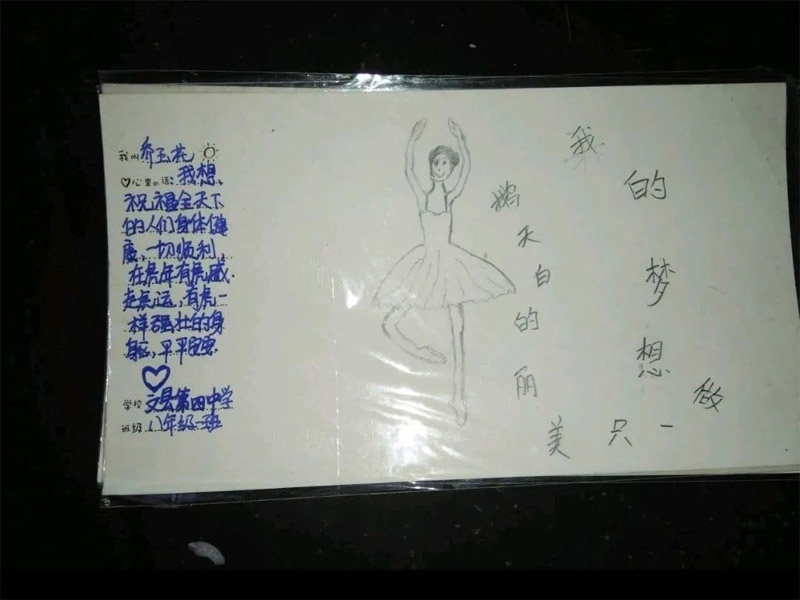 我叫 乔玉花
心里的话: 我想
祝福全天下
的人们身体健
康,一切顺利,
在虎年有虎威.
走虎运,有虎一
样强壮的身
躯,平平安安
学校 文县第四中学
班级 八年级一班
我的梦想做一只美丽的白天鹅